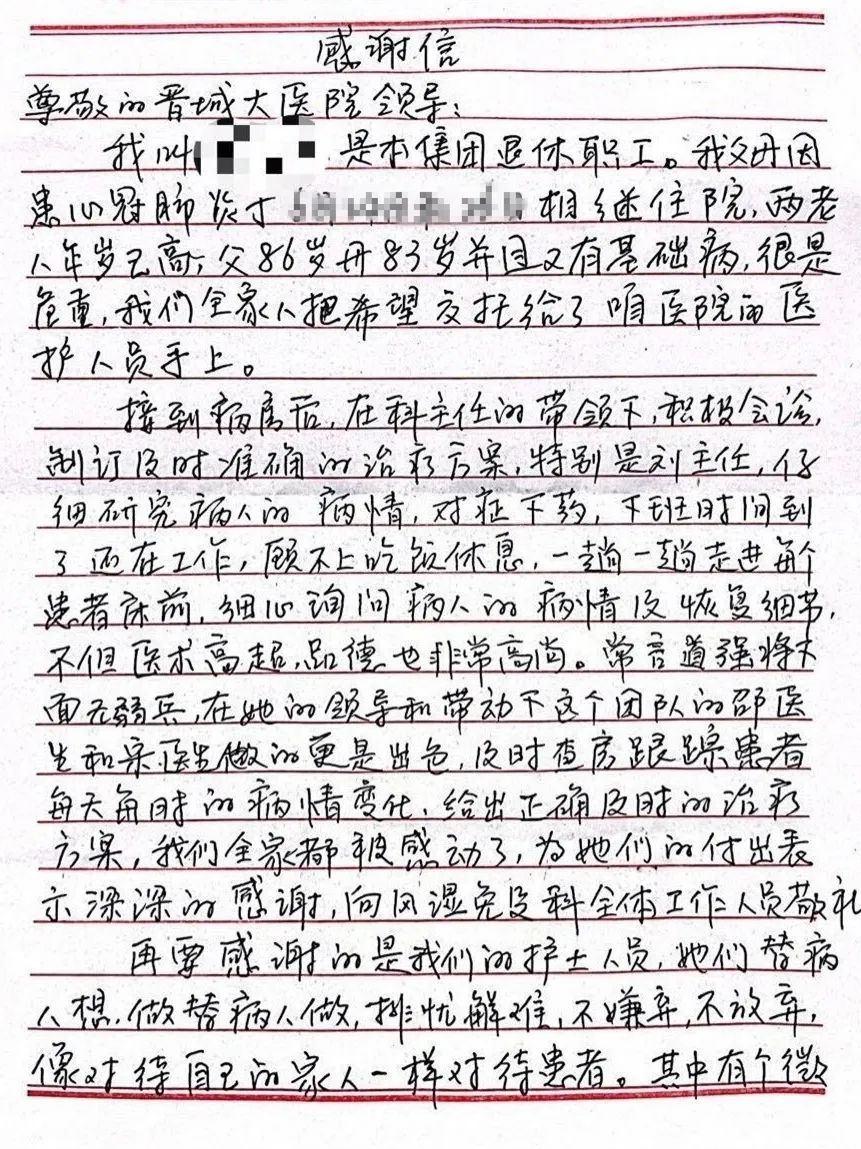 感谢信
尊敬的晋城大医院领导:
我叫 是本集团退休职工。我父母因
患心冠肺炎于 相继住院,两老
人年岁已高,父86岁母83岁并且又有基础病,很是
危重,我们全家人把希望交托给了咱医院的医
护人员手上。
接到病房后,在科主任的带领下,积极会诊,
制订及时准确的治疗方案,特别是刘主任,仔
细研究病人的病情,对症下药,下班时间到
了还在工作,顾不上吃饭休息,一趟一趟走进每个
患者床前,细心询问病人的病情及恢复细节,
不但医术高超,品德也非常高尚。常言道强将下
面无弱兵,在她的领导和带动下这个团队的邵医
生和宋医生做的更是出色,及时查房跟踪患者
每天每时的病情变化,给出正确及时的治疗
方案,我们全家都被感动了,为她们的付出表
示深深的感谢,向风湿免疫科全体工作人员敬礼
再要感谢的是我们的护士人员,她们替病
人想,做替病人做,排忧解难,不嫌弃,不放弃,
像对待自己的家人一样对待患者。其中有个微